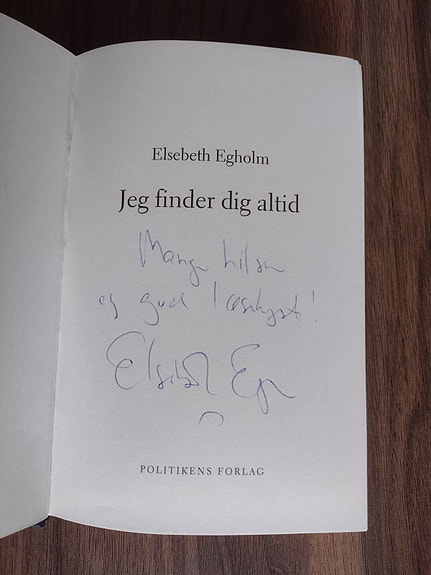 Elsebeth Egholm
Jeg finder dig altid
Mange hilsn
og god læselyst!
Elsebeth Eg
POLITIKENS FORLAG